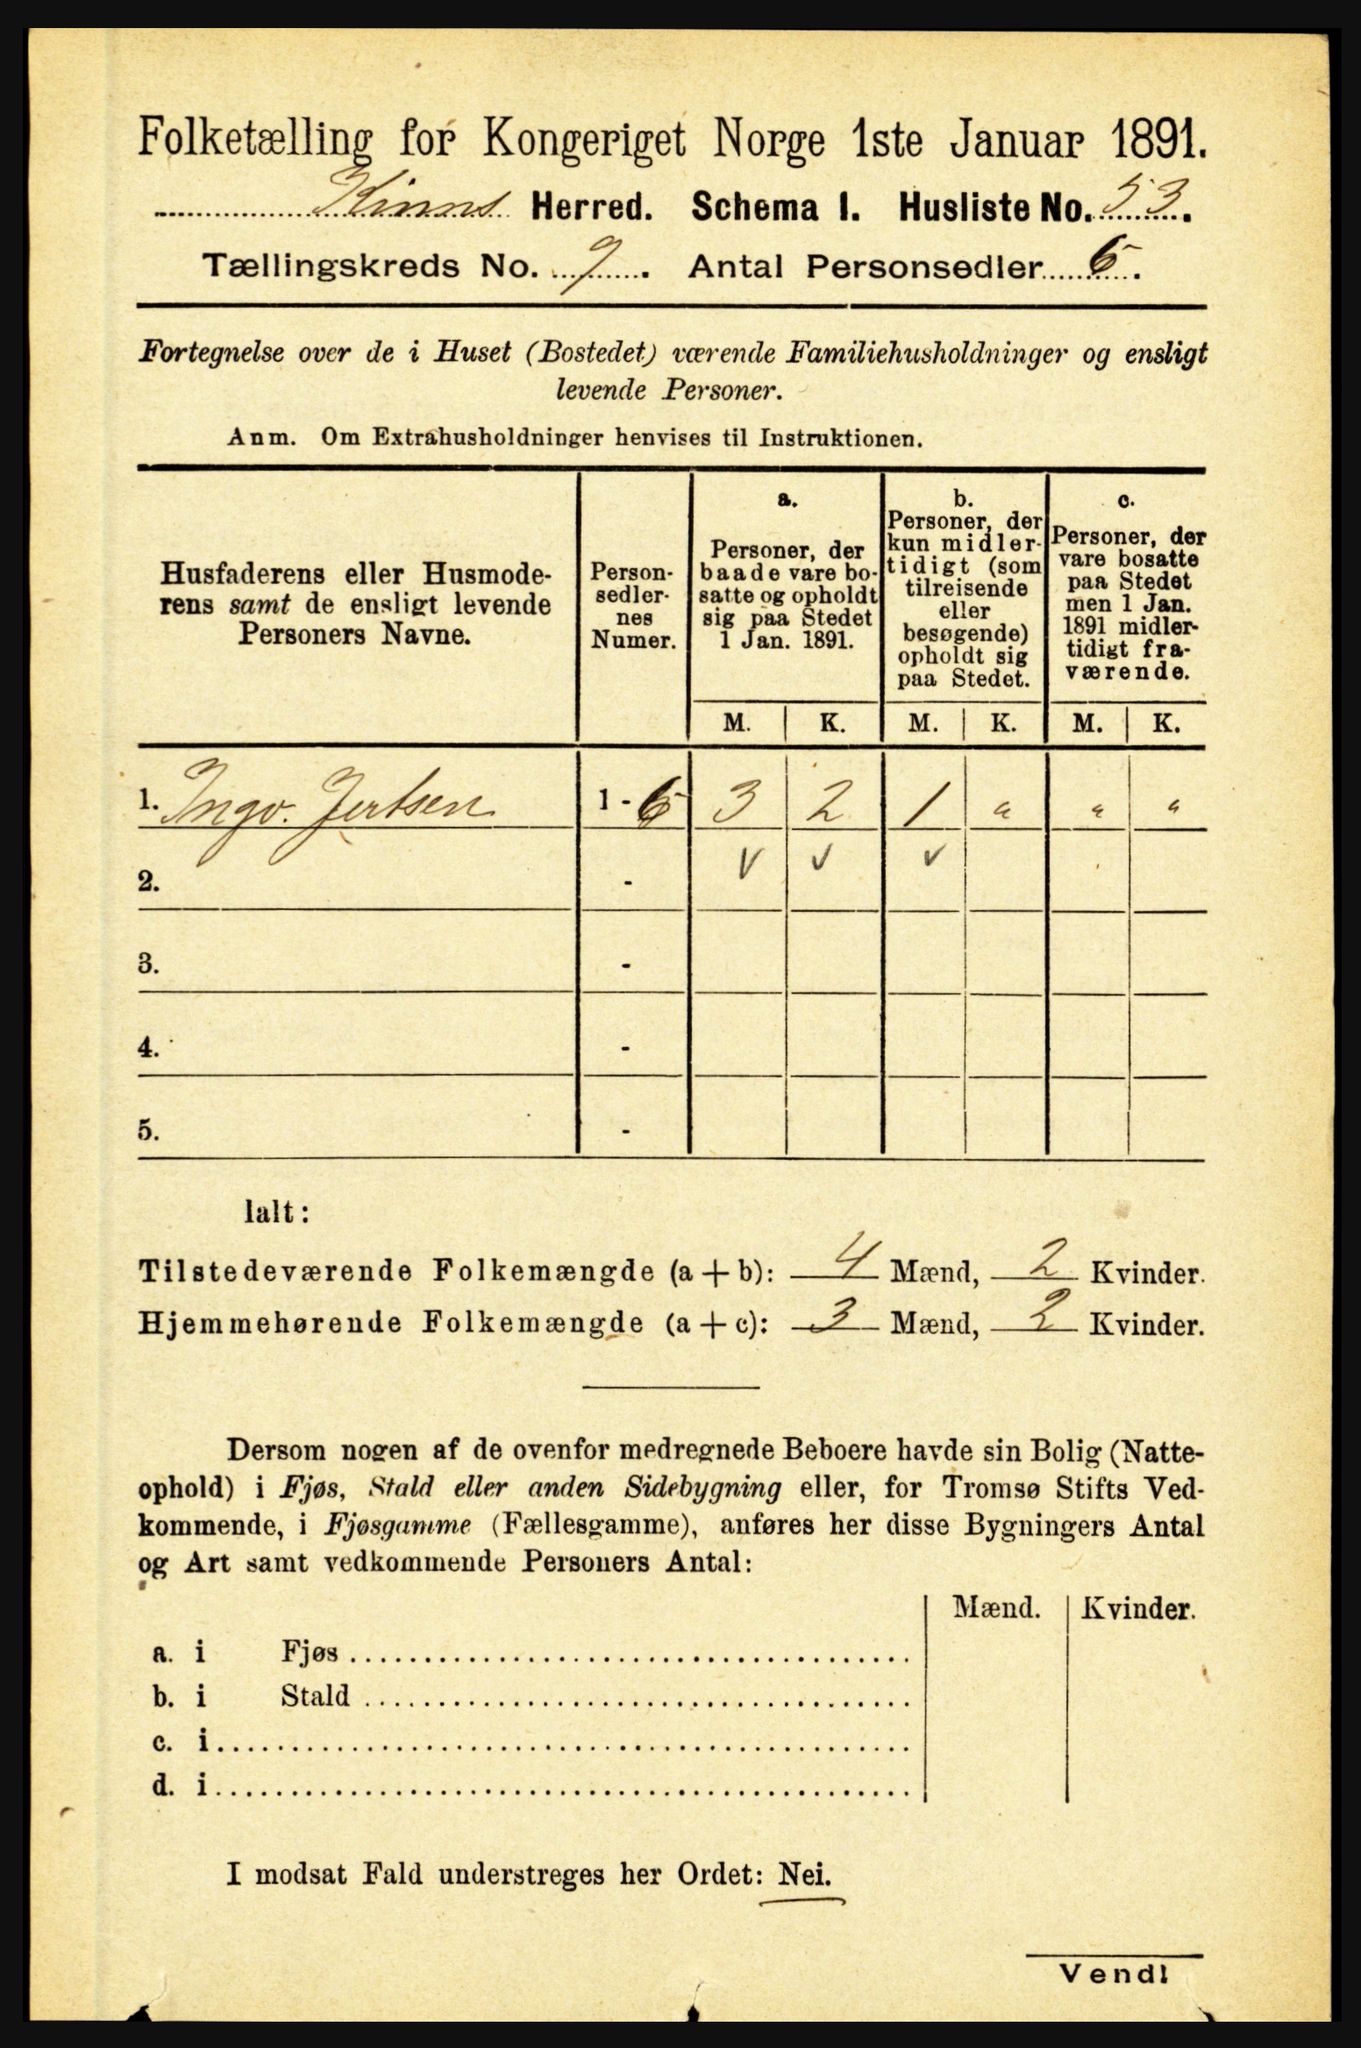 Folketælling for Kongeriget Norge 1ste Januar 1891.
Kinns Herred. Schema I. Husliste No. 53.
Tællingskreds No. 7. Antal Personsedler 6.
Fortegnelse over de i Huset (Bostedet) værende Familiehusholdninger og ensligt
levende Personer.
Anm. Om Extrahusholdninger henvises til Instruktionen.
Husfaderens eller Husmode-
rens samt de ensligt levende
Personers Navne.
Person-
sedler-
nes
Numer.
a.
Personer, der
baade vare bo-
satte og opholdt
sig paa Stedet
1 Jan. 1891.
b.
Personer, der
kun midler-
tidigt (som
tilreisende
eller
besøgende)
opholdt sig
paa Stedet.
c.
Personer, der
vare bosatte
paa Stedet
men 1 Jan.
1891 midler-
tidigt fra-
værende.
M. K. M. K. M. K.
1. Ingv. Jertsen 1 - 6 3 2 1 " " "
2. - v v v
3. -
4. -
5. -
Ialt:
Tilstedeværende Folkemængde (a + b): 4 Mænd, 2 Kvinder.
Hjemmehørende Folkemængde (a + c): 3 Mænd, 2 Kvinder.
Dersom nogen af de ovenfor medregnede Beboere havde sin Bolig (Natte-
ophold) i Fjøs, Stald eller anden Sidebygning eller, for Tromsø Stifts Ved-
kommende, i Fjøsgamme (Fællesgamme), anføres her disse Bygningers Antal
og Art samt vedkommende Personers Antal:
Mænd. Kvinder.
a. i Fjøs
b. i Stald
c. i
d. i
I modsat Fald understreges her Ordet: Nei.
Vend!